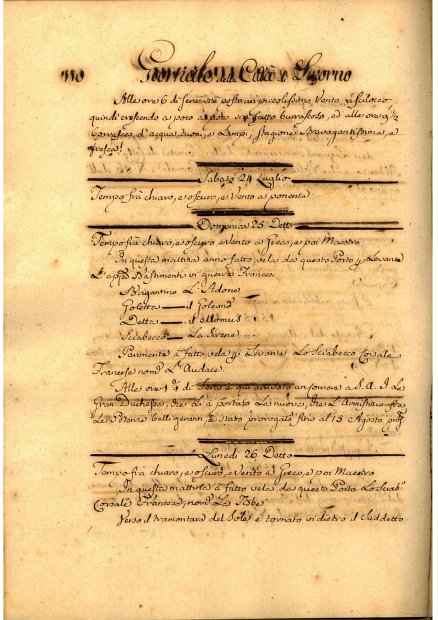 110 Giornale della Città di Livorno
Alle ore 6 di sera si è posto un piccolissimo Vento à Scilocco,
quindi crescendo a poco a poco si è fatto burrascoso, ed alle ore 9 1/2
borrasca d'acqua, tuoni, e Lampi, Stagione Stravagantissima, e
fresca!
Sabato 24 Luglio
Tempo frà chiaro, e oscuro, e Vento a ponente
Domenica 25 Detto
Tempo frà chiaro, e oscuro e Vento a Greco, e poi Maestro
In questa mattina anno fatto vela da questo Porto p. Levante
L'app. Bastimenti in guerra Francesi
Brigantino L'Adone
Goletta il Goleano
Detta il Momus
Sciabecco La Sirene
Parimenta à fatto vela p. Levante Lo Sciabecco Corsale
Francese nom. L'Audace
Alle ore 1 1/4 di Sera è qua arrivato un foriero a S. A. I. La
Gran Duchessa, che Le à portato La nuova, che L'Armistizio fra
Le Potenze belligeranti, è stato prorogato fino al 15 Agosto pros.
Lunedi 26 Detto
Tempo frà chiaro, e oscuro, e Vento à Greco, e poi Maestro
In questa mattina à fatto vela da questo Porto Lo Sciab.
Corsale Francese, nom. La Tisbe
Verso il tramontare del Sole è tornato indietro il Suddetto